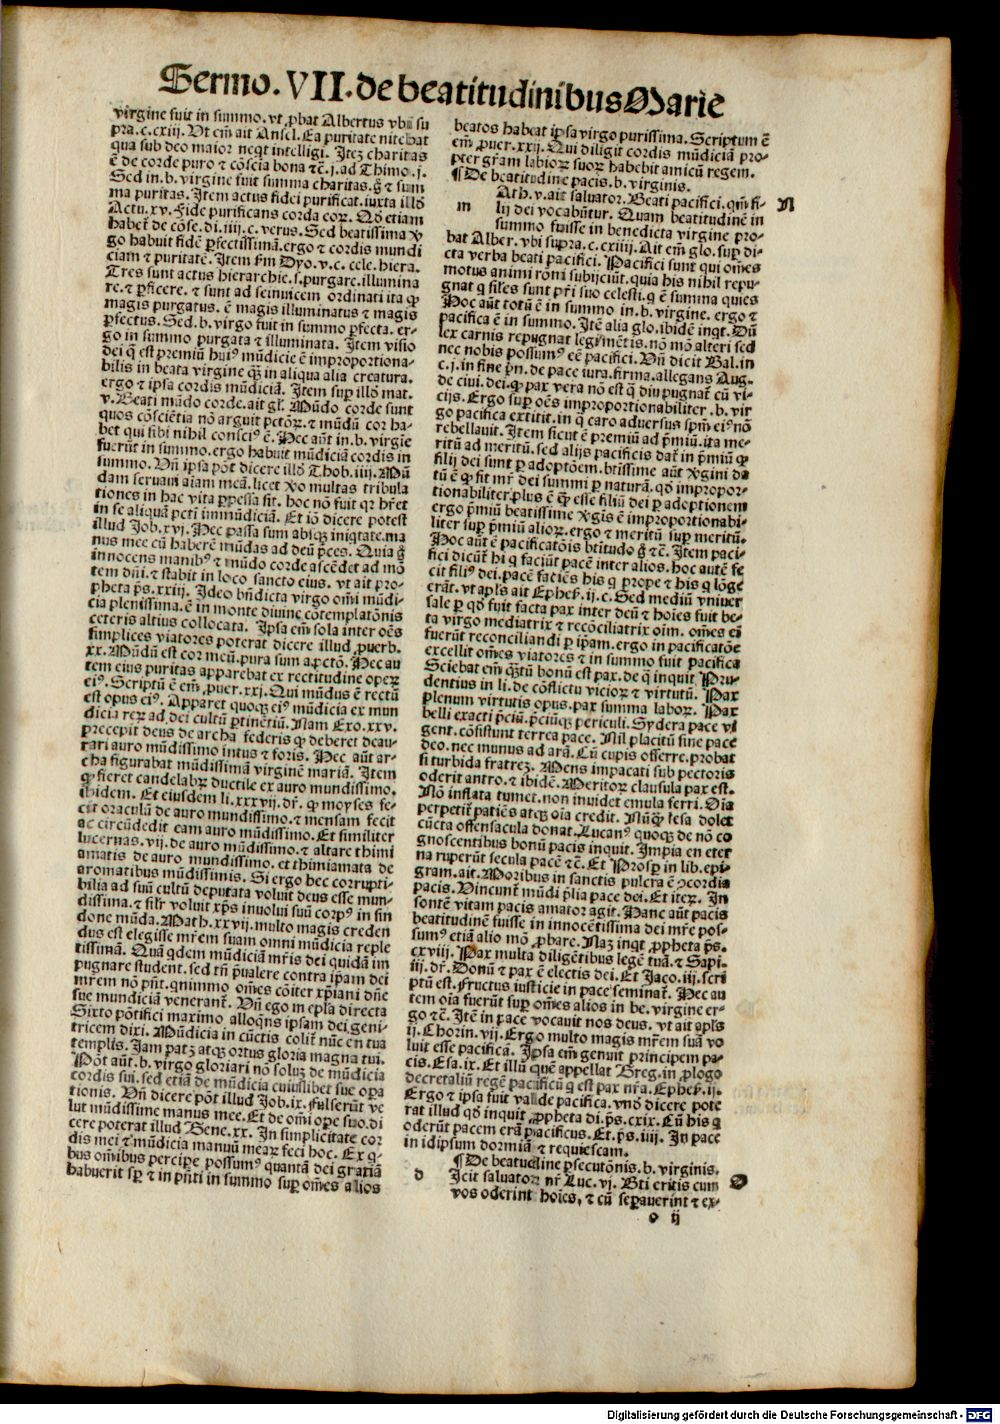 Sermo. VII. de beatitudinibus Marie
virgine fuit in summo. vt ꝓbat Albertus vbi su
pra. c. cxiij. Vt em̄ ait Ansel. Ea puritate nitebat
qua sub deo maior neqt intelligi. Itez charitas
ē de corde puro ⁊ cōscia bona ⁊c̄. j. ad Thimo. j.
Sed in. b. virgine fuit summa charitas. g̊ ⁊ sum
ma puritas. Item actus fidei purificat. iuxta illd̄
Actu. xv. Fide purificans corda eoꝝ. Qd̄ etiam
habet̄ de cōse. di. iiij. c. verus. Sed beatissima v̊
go habuit fidē ꝑfectissimā. ergo ⁊ cordis mundi
ciam ⁊ puritatē. Item ẜm Dyo. v. c. cele. hiera.
Tres sunt actus hierarchie. s. purgare. illumina
re. ⁊ ꝑficere. ⁊ sunt ad seinuicem ordinati ita ꝙ
magis purgatus. ē magis illuminatus ⁊ magis
ꝑfectus. Sed. b. virgo fuit in summo ꝑfecta. er-
go in summo purgata ⁊ illuminata. Item visio
dei q̄ est premiū huiꝰ mūdicie ē improportiona-
bilis in beata virgine qꝫ in aliqua alia creatura.
ergo ⁊ ipsa cordis mūdiciā. Item suꝑ illd̄ mat.
v. Beati mūdo corde. ait gl. Mūdo corde sunt
quos cōsciētia nō arguit pctōꝝ. ⁊ mūdū cor ha-
bet qui sibi nihil consciꝰ ē. Hec aūt in. b. virgīe
fuerūt in summo. ergo habuit mūdiciā cordis in
summo. Vn̄ ipsa pōt dicere illd̄ Thob. iiij. Mū
dam seruaui aīam meā. licet v̊o multas tribula
tiones in hac vita ꝑpessa sit. hoc nō fuit qꝛ hr̄et
in se aliquā pctī immūdiciā. Et iō dicere potest
illud Job. xvj. Hec passa sum absqꝫ iniqtate. ma
nus mee cū haberē mūdas ad deū p̄ces. Quia g̊
innocens manibꝰ ⁊ mūdo corde ascēdet ad mō
tem dn̄i. ⁊ stabit in loco sancto eius. vt ait pro-
pheta ps̄. xxiij. Ideo bn̄dicta virgo om̄i mūdi-
cia plenissima. ē in monte diuine cōtemplatōnis
ceteris altius collocata. Ipsa em̄ sola inter oēs
simplices viatores poterat dicere illud ꝓuerb.
xx. Mūdū est cor meū. pura sum a pctō. Hec au
tem eius puritas apparebat ex rectitudine opeꝝ
eiꝰ. Scriptū ē em̄ ꝓuer. xxj. Qui mūdus ē rectū
est opus eiꝰ. Apparet quoqꝫ eiꝰ mūdicia ex mun
dicia reꝝ ad dei cultū ꝑtinētiū. Nam Exo. xxv.
precepit deus de archa federis ꝙ deberet deau-
rari auro mūdissimo intus ⁊ foris. Hec aūt ar-
cha figurabat mūdissimā virginē mariā. Item
ꝙ fieret candelabꝝ ductile ex auro mundissimo.
ibidem. Et eiusdem li. xxxvij. dr̄. ꝙ moyses fe-
cit oraculū de auro mundissimo. ⁊ mensam fecit
ac circūdedit eam auro mūdissimo. Et similiter
lucernas. vij. de auro mūdissimo. ⁊ altare thimi
amatis de auro mundissimo. et thimiamata de
aromatibus mūdissimis. Si ergo hec corrupti-
bilia ad suū cultū deputata voluit deus esse mun-
dissima. ⁊ silr̄ voluit xp̄s inuolui suū corpꝰ in sin
done mūda. Math. xxvij. multo magis creden
dus est elegisse mr̄em suam omni mūdicia reple
tissimā. Quā qdem mūdiciā mr̄is dei quidā im
pugnare student. sed tn̄ p̄ualere contra ip̄am dei
mr̄em nō pn̄t. qnimmo om̄es cōiter xp̄iani dn̄e
sue mundiciā venerant̄. Vn̄ ego in ep̄la directa
Sixto pōtifici maximo alloqn̄s ipsam dei geni-
tricem dixi. Mūdicia in cūctis colit̄ nūc en tua
templis. Jam patꝫ atqꝫ ortus gloria magna tui.
Pōt aūt. b. virgo gloriari nō soluꝫ de mūdicia
cordis sui. sed etiā de mūdicia cuiuslibet sue oꝑa
tionis. Vn̄ dicere pōt illud Job. ix. Fulserūt ve
lut mūdissime manus mee. Et de om̄i oꝑe suo. di
cere poterat illud Gene. xx. In simplicitate cor
dis mei ⁊ mūdicia manuū meaꝝ feci hoc. Ex q-
bus om̄ibus perciꝑe possumꝰ quantā dei gratiā
habuerit sꝑ ⁊ in pn̄ti in summo suꝑ om̄es alios
beatos habeat ip̄sa virgo purissima. Scriptum ē
em̄ ꝓuer. xxij. Qui diligit cordis mūdiciā pro-
pter gr̄am labioꝝ suoꝝ habebit amicū regem.
¶ De beatitudine pacis. b. virginis.
m Ath. v. ait saluator. Beati pacifici. qm̄ fi- N
lij dei vocabūtur. Quam beatitudinē in
summo fuisse in benedicta virgine pro-
bat Alber. vbi supra. c. cxiiij. Ait em̄ glo. suꝑ di-
cta verba beati pacifici. Pacifici sunt qui om̄es
motus animi rōni subijciūt. quia his nihil repu-
gnat q siles sunt pr̄i suo celesti. q ē summa quies
Hoc aūt totū ē in summo in. b. virgine. ergo ⁊
pacifica ē in summo. Itē alia glo. ibidē inqt. Dū
lex carnis repugnat legi mētis. nō mō alteri sed
nec nobis possumꝰ eē pacifici. Vn̄ dicit Bal. in
c. j. in fine pn̄. de pace iura. firma. allegans Aug.
de ciui. dei. ꝙ pax vera nō est q̄ diu pugnat̄ cū vi-
cijs. Ergo suꝑ oēs improportionabiliter. b. vir
go pacifica extitit. in q̄ caro aduersus spm̄ eiꝰ nō
rebellauit. Item sicut ē premiū ad p̄miū. ita me-
ritū ad meritū. sed alijs pacificis dat̄ in p̄miū ꝙ
filij dei sunt ꝑ adoptōem. btissime aūt v̊gini da
tū ē ꝙ sit mr̄ dei summi ꝑ naturā. qd̄ impropor-
tionabiliter. plus ē ꝙ̄ esse filiū dei ꝑ adoptionem
ergo p̄miū beatissime v̊gis ē improportionabi-
liter suꝑ p̄miū alioꝝ. ergo ⁊ meritū suꝑ meritū.
Hoc aūt ē pacificatōis btitudo g̊ ⁊c̄. Item paci-
fici dicūt̄ hi q faciūt pacē inter alios. hoc autē fe
cit filiꝰ dei. pacē faciēs his q prope ⁊ his q lōge
erāt. vt apl̄s ait Ephes. ij. c. Sed mediū vniuer
sale ꝑ qd̄ fuit facta pax inter deū ⁊ hoīes fuit be-
ta virgo mediatrix ⁊ recōciliatrix oīm. om̄es em̄
fuerūt reconciliandi ꝑ ip̄am. ergo in pacificatōe
excellit om̄es viatores ⁊ in summo fuit pacifica
Sciebat em̄ q̄tū bonū est pax. de q̄ inquit Pru-
dentius in li. de cōflictu vicioꝝ ⁊ virtutū. Pax
plenum virtutis opus. pax summa laboꝝ. Pax
belli exacti p̄ciū. p̄ciūqꝫ periculi. Sydera pace vi
gent. cōsistunt terrea pace. Nil placitū sine pace
deo. nec munus ad arā. Cū cupis offerre. probat
si turbida fratreꝫ. Mens impacati sub pectoris
oderit antro. ⁊ ibidē. Meritoꝝ clausula pax est.
Nō inflata tumet. non inuidet emula ferri. Oīa
perpetit̄ patiēs atqꝫ oīa credit. Nūqꝫ lesa dolet
cūcta offensacula donat. Lucanꝰ quoqꝫ de nō co
gnoscentibus bonū pacis inquit. Impia en eter
na ruperūt secula pacē ⁊c̄. Et Prosꝑ in lib. epi-
gram. ait. Moribus in sanctis pulcra ē ꝯcordia
pacis. Vincunt̄ mūdi p̄lia pace dei. Et iteꝝ. In
sontē vitam pacis amator agit. Hanc aūt pacis
beatitudinē fuisse in innocētissima dei mr̄e pos-
sumꝰ etiā alio mō ꝓbare. Naꝫ inqt ꝓpheta ps̄.
cxviij. Pax multa diligētibus legē tuā. ⁊ Sapi-
iij. dr̄. Donū ⁊ pax ē electis dei. Et Jaco. iij. scri
ptū est. Fructus iusticie in pace seminat̄. Hec au
tem oīa fuerūt suꝑ om̄es alios in be. virgine er-
go ⁊c̄. Itē in pace vocauit nos deus. vt ait apl̄s
ij. Chorin. vij. Ergo multo magis mr̄em suā vo
luit esse pacificā. Ipsa em̄ genuit principem pa-
cis. Esa. ix. Et illū quē appellat Greg. in ꝓlogo
decretaliū regē pacificū q est pax nr̄a. Ephes. ij.
Ergo ⁊ ipsa fuit valde pacifica. vnd̄ dicere pote
rat illud qd̄ inquit ꝓpheta di. ps̄. cxix. Cū his q
oderūt pacem erā pacificus. Et. ps̄. iiij. In pace
in idipsum dormiā ⁊ requiescam.
¶ De beatitudine ꝑsecutōnis. b. virginis.
d Icit saluator nr̄ Luc. vj. Bti eritis cum O
vos oderint hoīes, ⁊ cū seꝑauerint ⁊ ex-
o ij
Digitalisierung gefördert durch die Deutsche Forschungsgemeinschaft - DFG